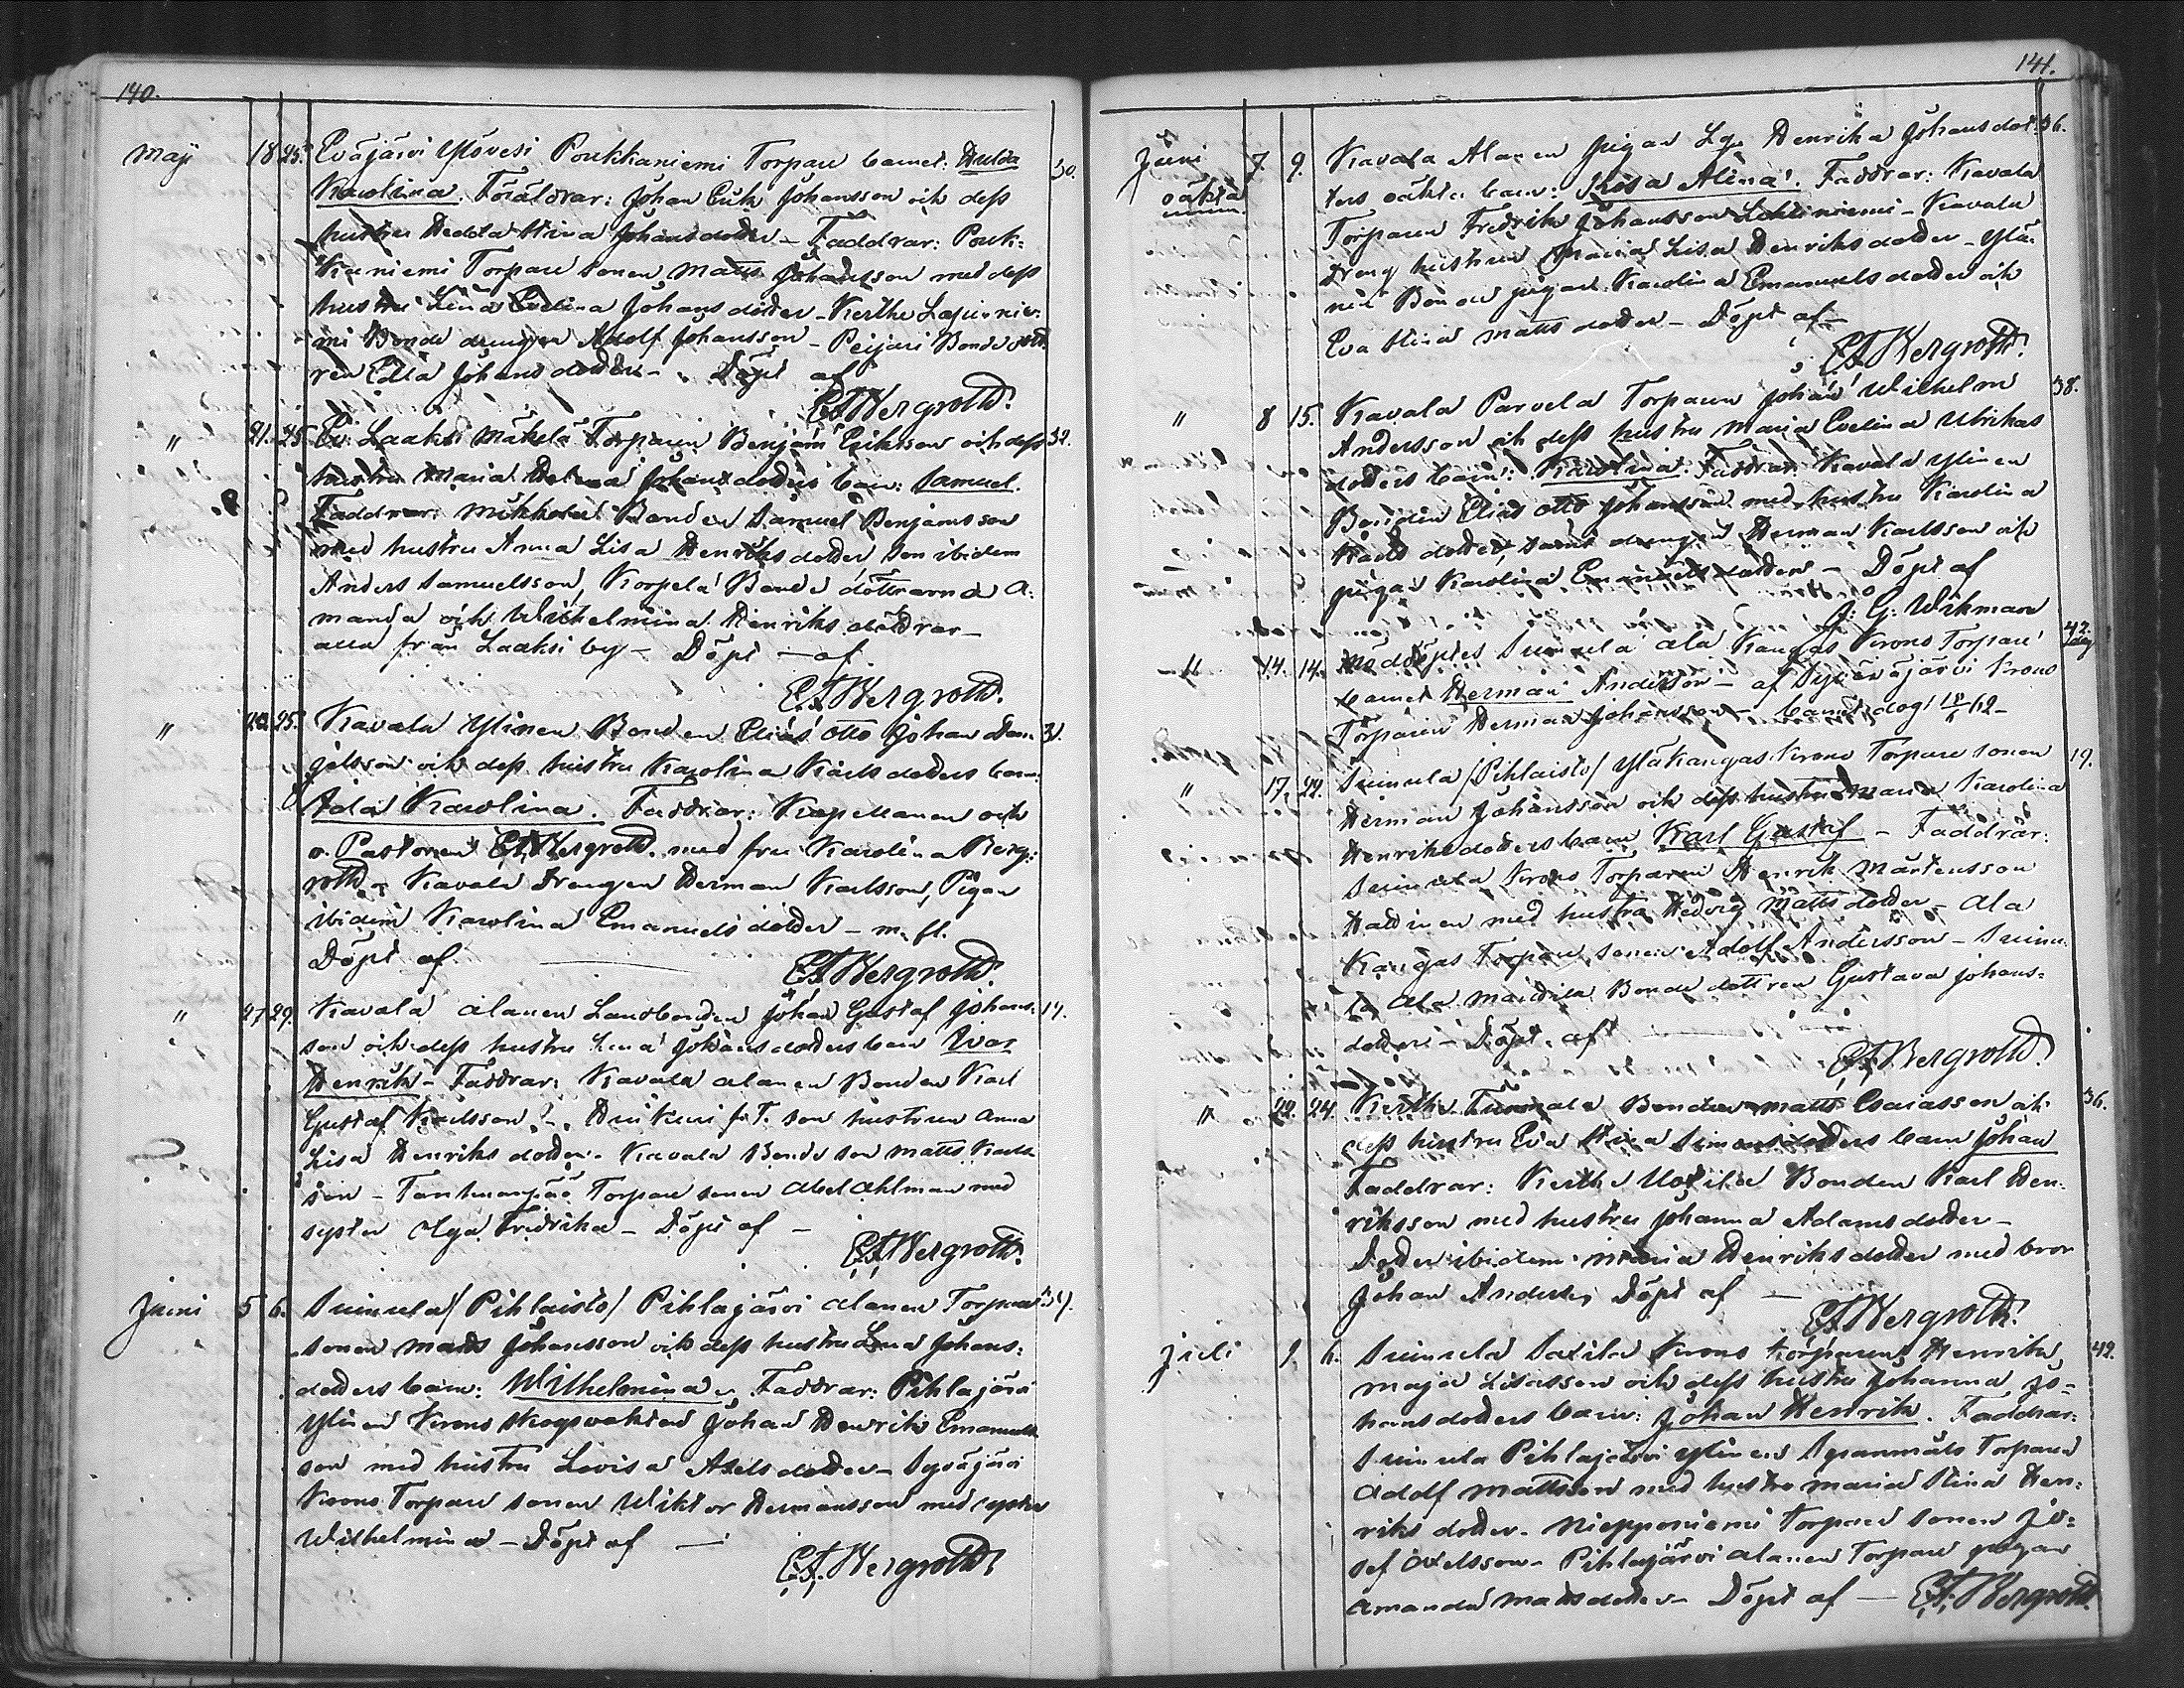 140.
Maji 18 25. Eväjärvi Ylövesi Poukkaniemi Torpare barnet: Hulda 30.
Karolina. Föräldrar: Johan Erik Johansson och dess
hustru Hedda Stina Johansdotter – Faddrar: Pouk-
kaniemi Torpare sonen Matts Johansson med dess
hustru Lena Evelina Johansdotter – Kerthe
mi Bonde drengen Adolf Johansson – Peijari Bonde dott
ren Edla Johansdotter – Döpt af
E.F. Bergroth.
" 21. 25 Ev: Laaksi Mäkelä Torparen Benjam Eriksson och dess 32.
hustru Maria Helena Johansdotters barn: Samuel.
Faddrar: Mikkola Bonden Samuel Benjamsson
med hustru Anna Lisa Henriksdotter, son ibidem
Anders Samuelsson, Korpela Bonde döttrarna A-
manda och Wilhelmina Henriks döttrar –
alla från Laaksi by – Döpt – af
E.F. Bergroth.
" 25. Kavala Ylinen Bonden Elias Otto Johan Dan- 31.
jelsson och dess hustru Karolina Karlsdotters barn
Ada Karolina. Faddrar: Kapellanen och
v. Pastoren E.F. Bergroth. med fru Karolina Berg-
roth – Kavala Drengen Herman Karlsson, Pigan
ibidem Karolina Emanuelsdotter – m. fl.
Döpt af
E.F. Bergroth.
" 27 29. Kavala Alanen Landbonden Johan Gustaf Johans-
son och dess hustru Lena Johansdotters barn Ivar
Henrik – Faddrar: Kavala Alanen Bonden Karl
Gustaf Karlsson f. T. son hustrun Anna
Lisa Henriksdotter. Kavala Bonde son Matts Karls
son – Torpare sonen Abel Ahlman med
syster Olga Fredrika – Döpt af –
E.F. Bergroth.
Juni 5 6. Suinula /Pihlaisto/ Pihlajärvi Alanen Torpare
sonen Matts Johansson och dess hustru Lena Johans-
dotters barn: Wilhelmina. Faddrar: Pihlajärvi
Ylinen Krono Skogsvaktare Johan Henrik Emanuels
son med hustru Lovisa Axelsdotter – Syväjärvi
Krono Torpare sonen Wiktor Hermansson med syster
Wilhelmina – Döpt af –
E.F. Bergroth.
141.
Juni 7. 9. Kavala Alanen pigan Lg. Henrika Johansdot- 36.
oäkta ters oäkta barn: Lisa Alina. Faddrar: Kavala
Torparen Fredrik Johansson – Kavala
Dreng hustrun Maria Lisa Henriksdotter – Yli-
nen Bonde pigan Karolina Emanuelsdotter och
Eva Stina Mattsdotter – Döpt af –
E.F. Bergroth.
" 8 15. Kavala Parvela Torparen Johan Wilhelm 38.
Andersson och dess hustru Maria Evelina Ulrikas
dotters barn: Karolina. Faddrar: Kavala Ylinen
Bonden Elias Otto Johansson med hustru Karolina
Karls dotter, samt drengen Herman Karlsson och
pigan Karolina Emanuelsdotter – Döpt af
J. G. Wikman
" 14. 14. Nöddöptes Suinula Ala Kangas Krono Torpare 42.
barnet Herman Andersson – af Syväjärvi Krono
Torparen Herman Johansson – barnet dog
" 17. 22. Suinula /Pihlaisto/ Yläkangas Krono Torpare sonen 19.
Herman Johansson och dess hustru Maria Karolina
Henriksdotters barn Karl Gustaf – Faddrar:
Suinula Krono Torparen Henrik Mårtensson
med hustru Hedvig Mattsdotter – Ala
Kangas Torpare sonen Adolf Andersson – Suinu-
la Ala Bonde dottren Gustava Johans-
dotter – Döpt af
E.F. Bergroth.
" 22. 24. Kerthe Bonden Matts Esaiasson och 36.
dess hustru Eva Stina Simonsdotters barn Johan
Faddrar: Kerthe Bonden Karl Hen-
riksson med hustru Johanna Adamsdotter –
Dotter ibidem Maria Henriksdotter med bror
Johan Anders, Döpt af –
E.F. Bergroth.
Juli 6. Suinula Krono torparen Henrik 42.
hustru Johanna Jo-
hansdotters barn: Johan Henrik. Faddrar:
Suinula Pihlajärvi Ylinen Torparen
Adolf Mattsson med hustru Maria Stina Hen-
riksdotter. Niepponiemi Torpare sonen Jo-
sef Axelsson – Pihlajärvi Alanen Torpare pigan
Amanda Mattsdotter – Döpt af – E.F. Bergroth.